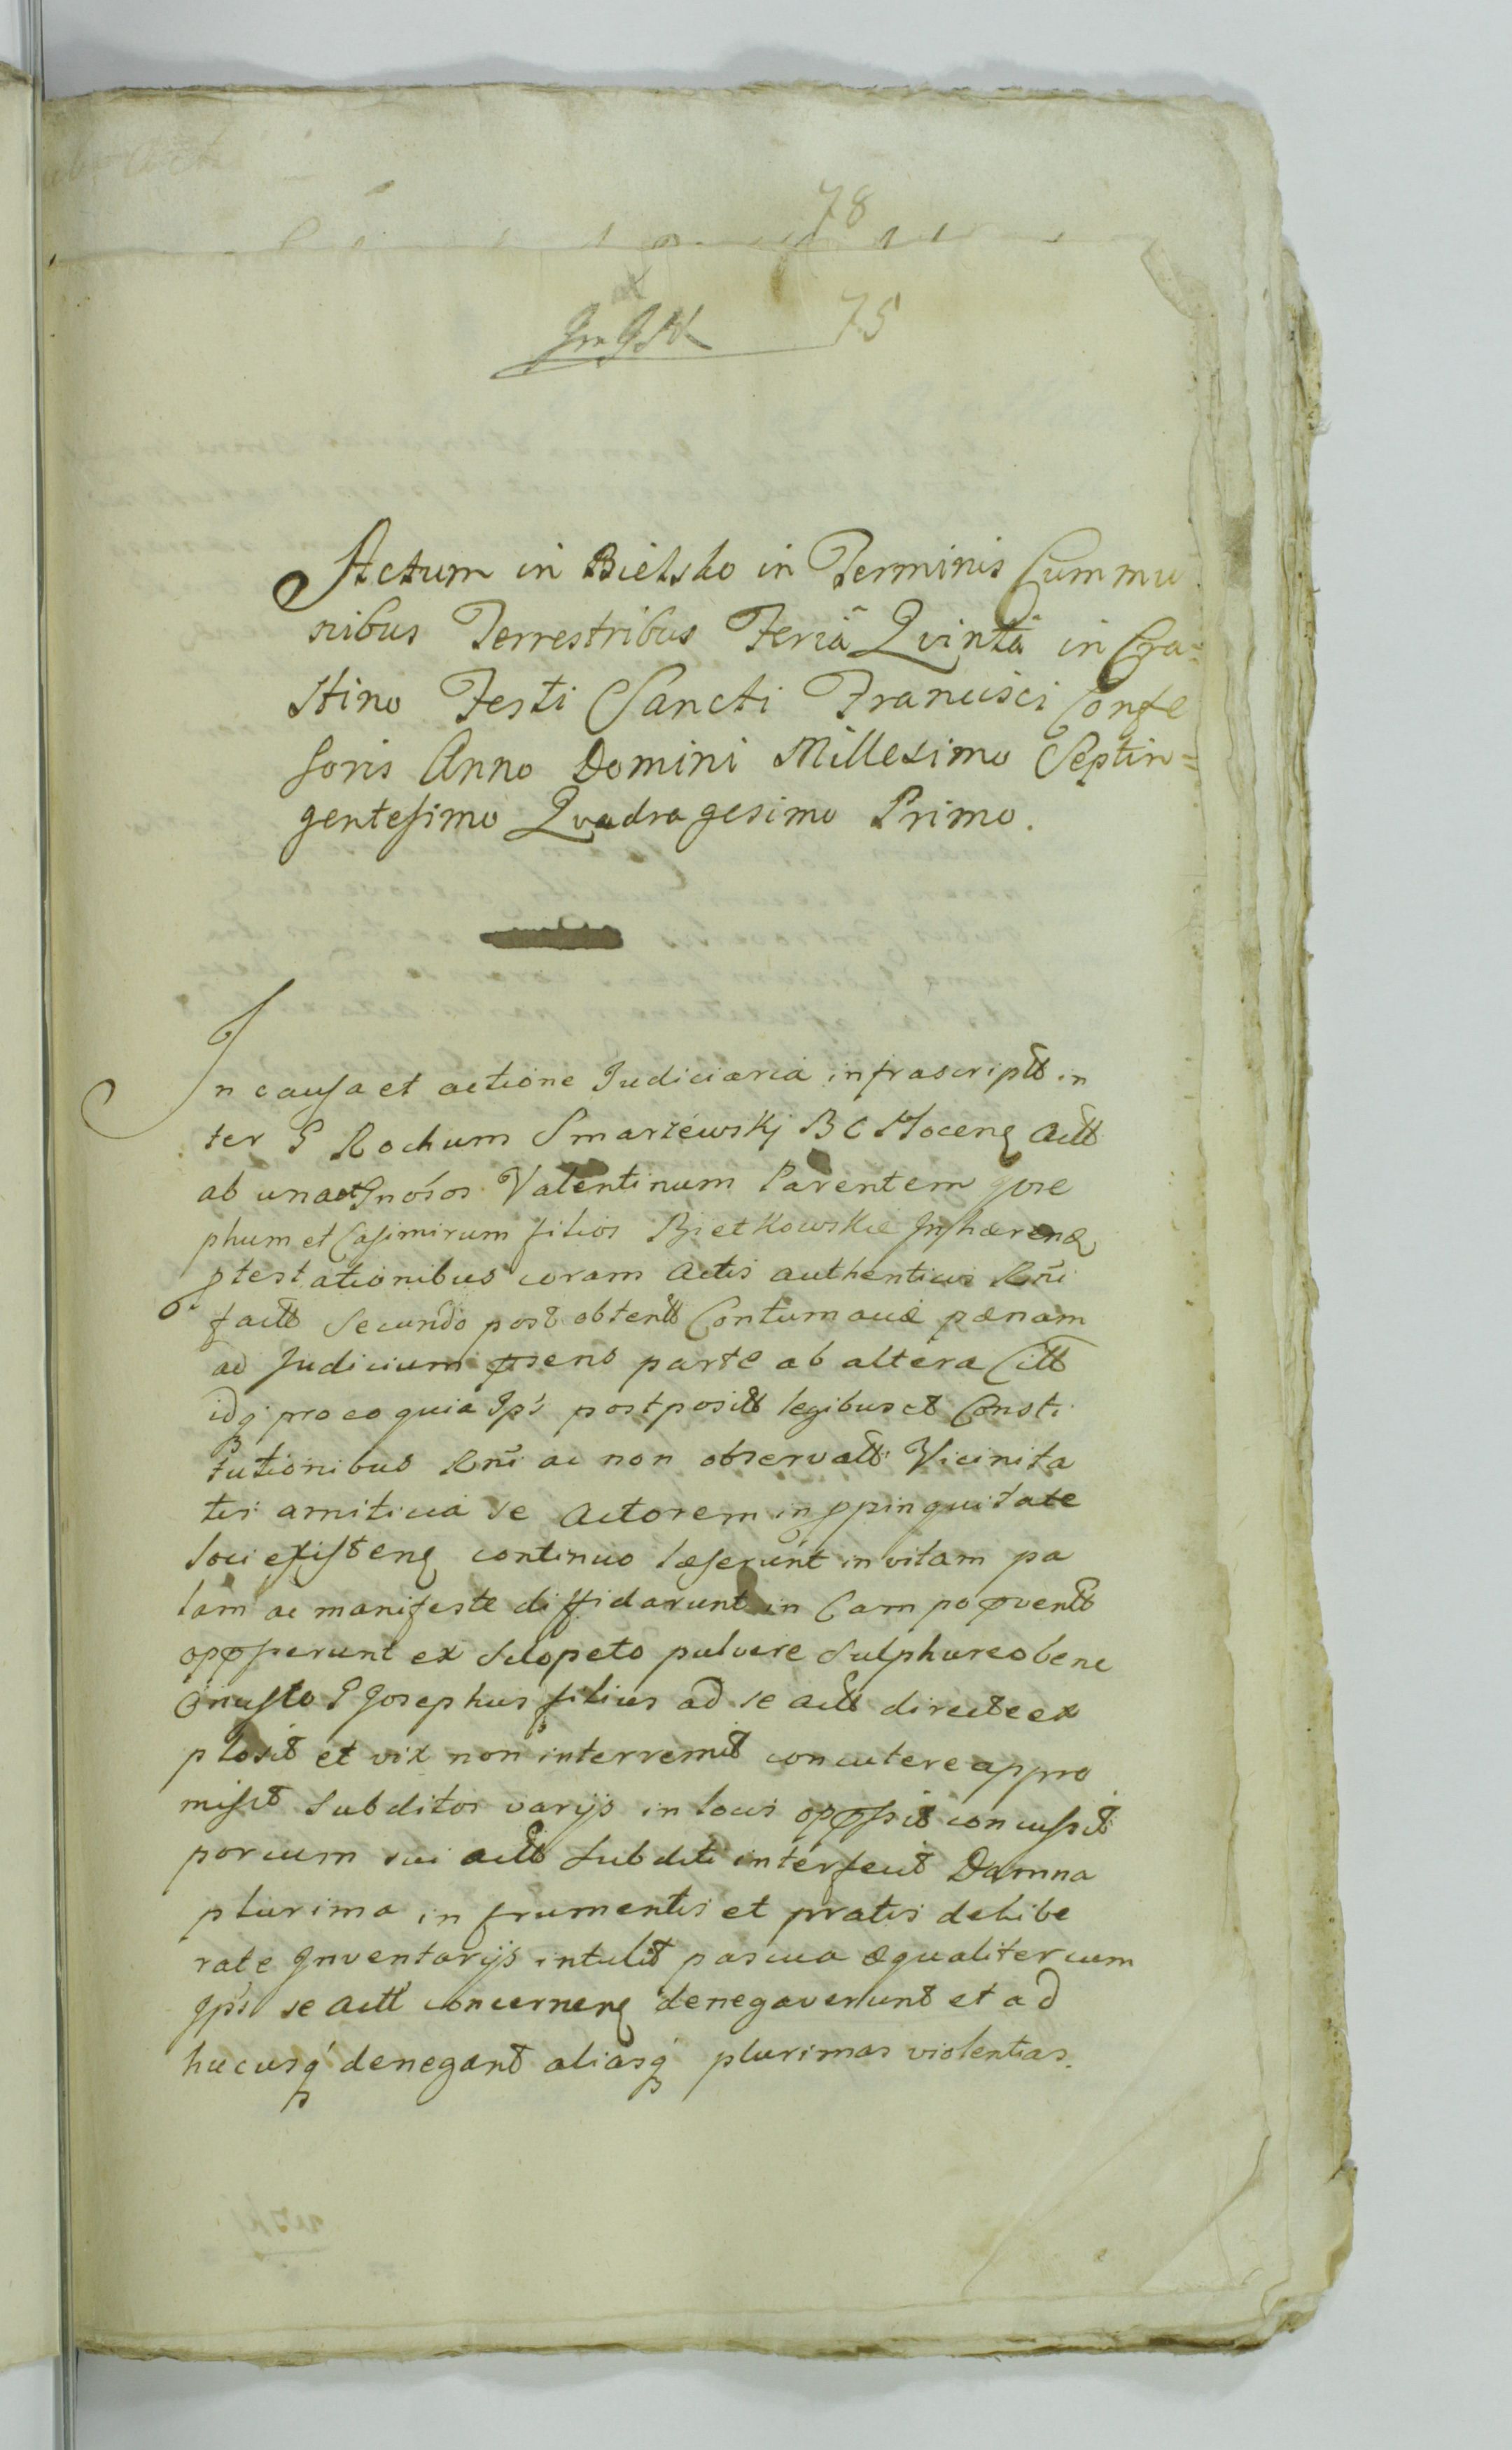 78
75
Actum in Bielsko in Terminis Cummu
nibus Terrestribus Feriâ Qvintâ in Cra=
stino Festi Sancti Francisci Confe
soris Anno Domini Millesimo Septin=
gentesimo Qvadragesimo Primo.
In causa et actione Judiciaria infrascriptt in
ter G Rochum Smarzewskj B C Actt
ab una et Gnosos Valentinum Parentem Jose
phum et Casimirum filios Bietkowskie Inhæren
ptestationibus coram Actis authenticis Rni
factt Secundo post obtentt Contumaciæ pænam
ad Judicium psens parte ab altera Citt
idq pro eo quia Ipsi postpositt legibus et Consti
tutionibus Rni ac non observatt Vicinita
tis amiticia se Actorem in ppinquitate
loci existen continuo læserunt in vitam pa
lam ac manifeste diffidarunt in Campo pventt
oppsserunt ex sclopeto pulvere sulphureo bene
onusto G Josephus filius ad se Actt directe ex
plosit et vix non interremit concutere appro
misit Subditos varijs in locis oppssit concussit
porcum sui Actt Subditi interfecit Damna
plurima in frumentis et pratis delibe
rate Inventarijs intulit pascua æqualiter cum
Ipsis se Actt concernen denegaverunt et ad
hucusq denegant aliasq plurimas violentias.